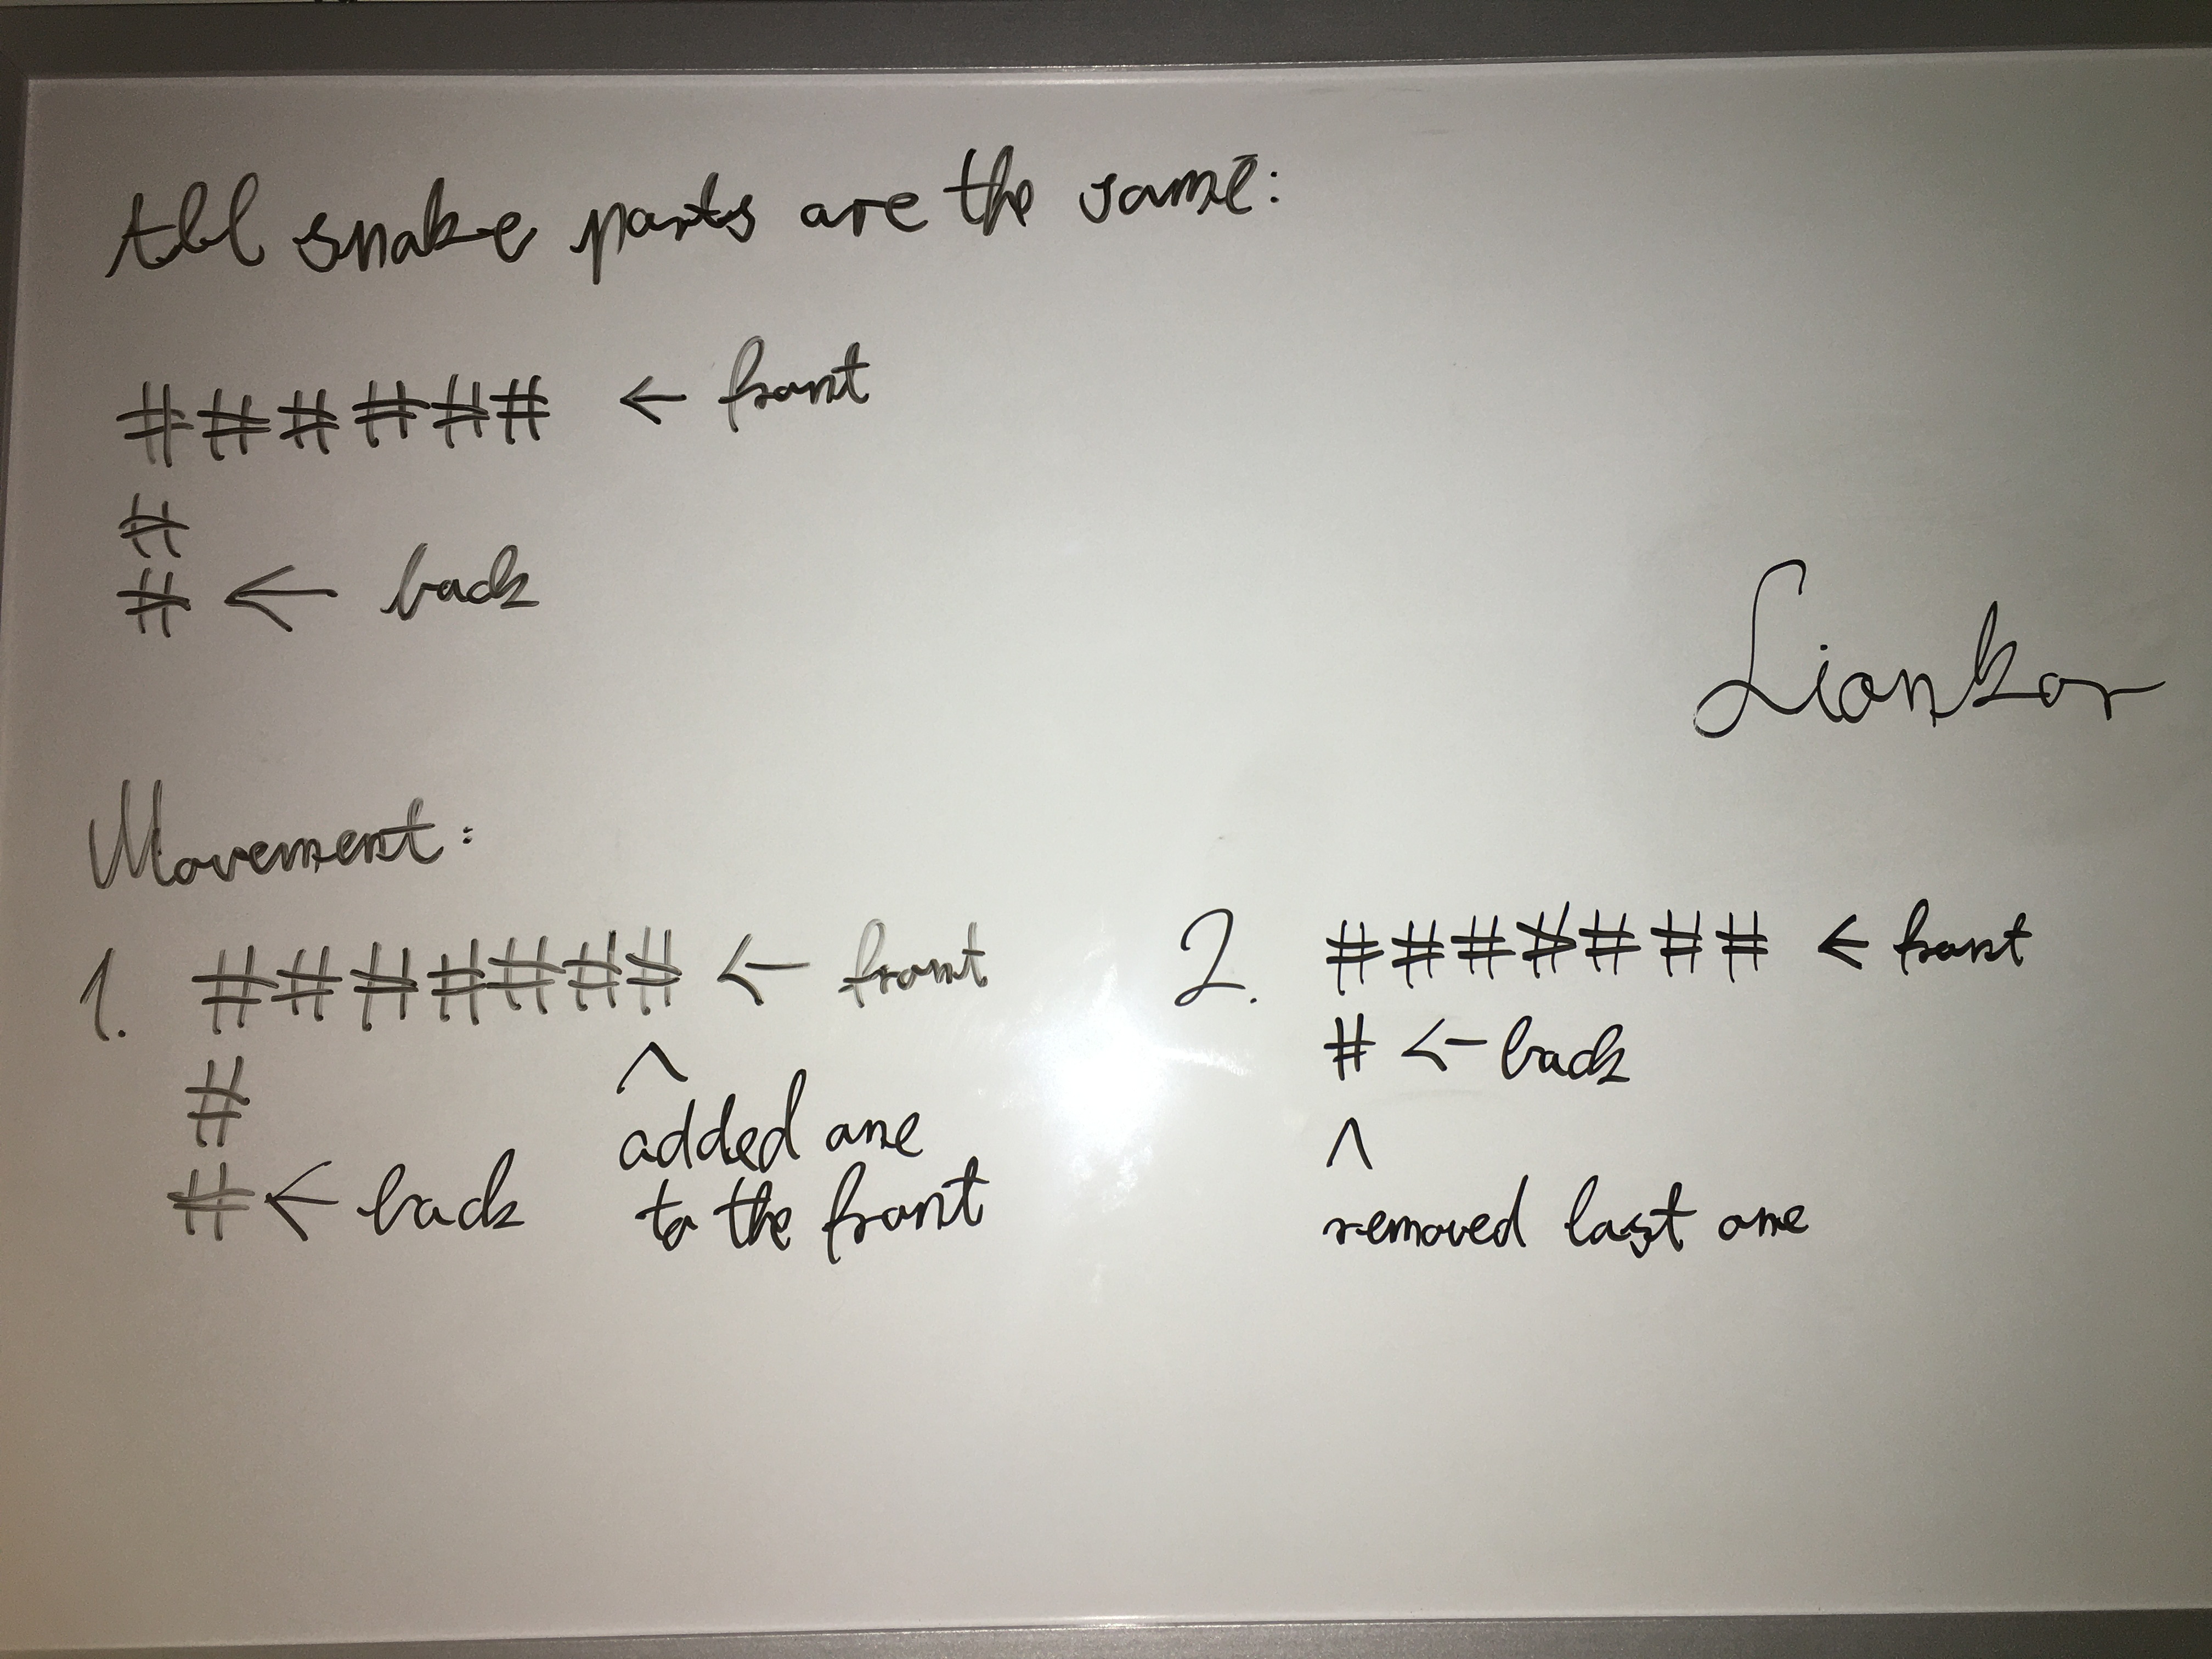 All snake parts are the same:
###### ← front
#
# ← back
Liankor
Movement:
1. ####### ← front
#
# ← back
^
added one
to the front
2. ####### ← front
# ← back
^
removed last one